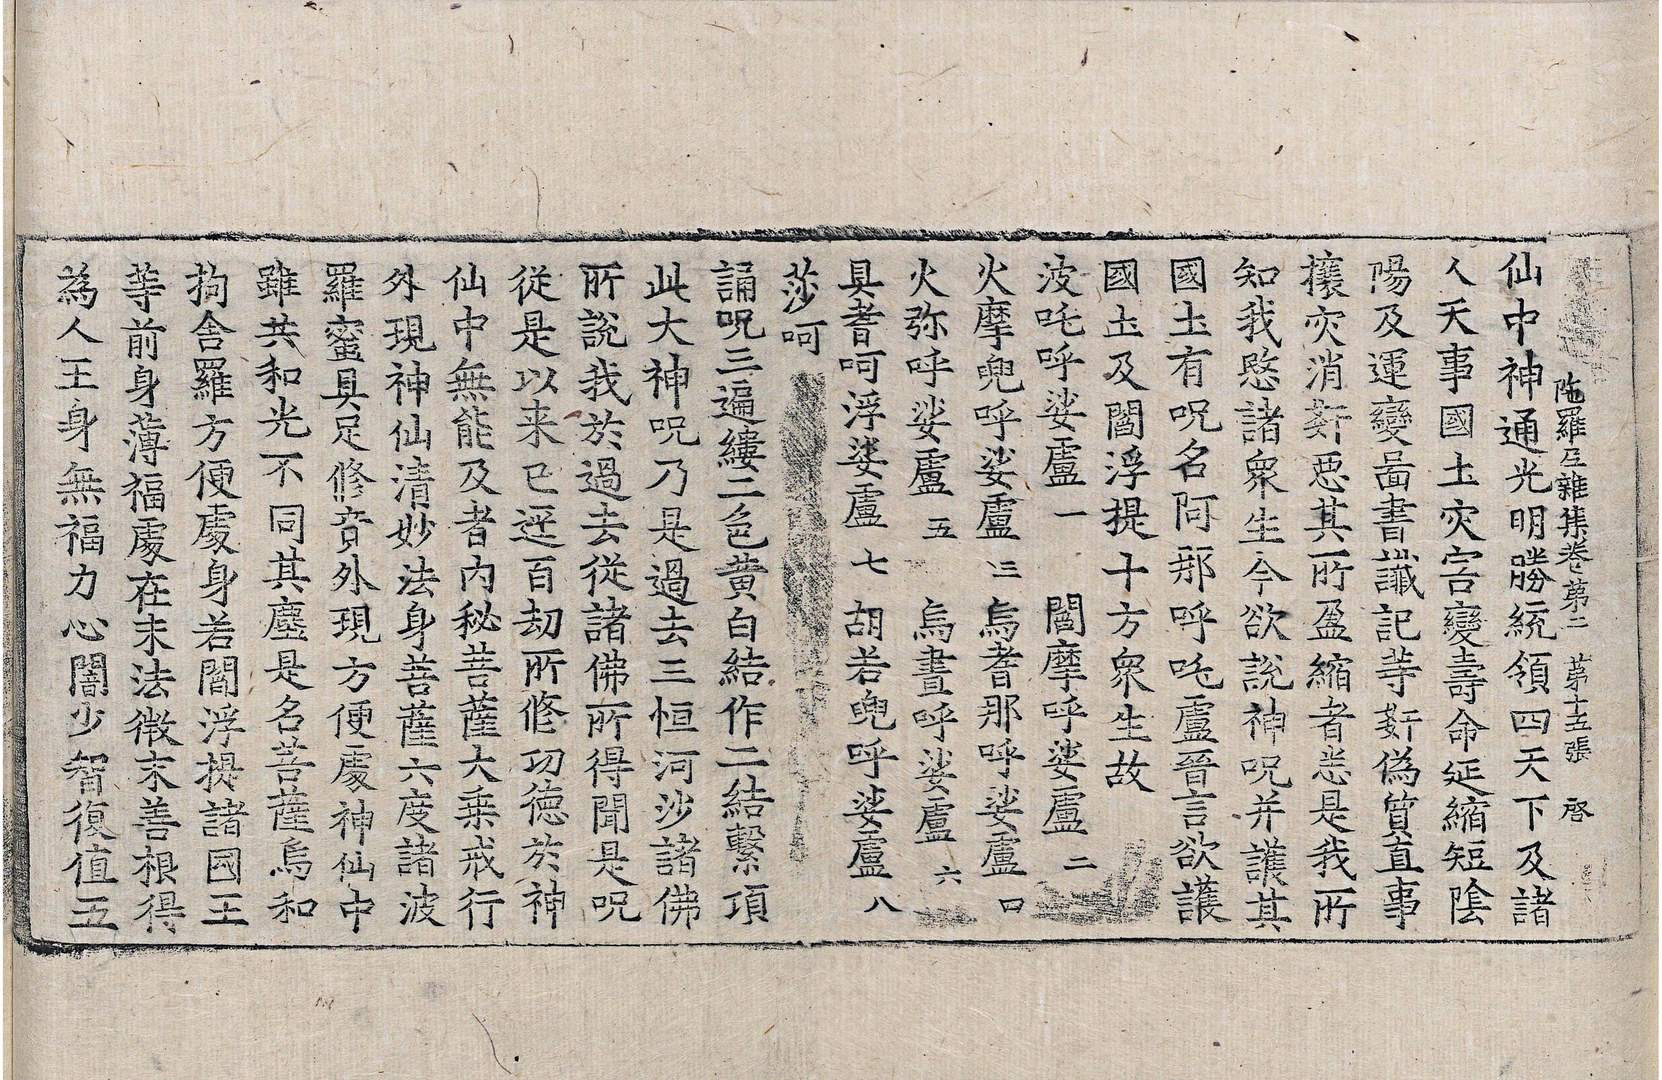 陁羅尼雜集卷第二　第十五張　啓
仙中神通光明勝統領四天下及諸
人天事國土灾害變壽命延縮短陰
陽及運變啚書讖記等姧偽質直事
攘灾消姧惡其所盈縮者悉是我所
知我愍諸衆生今欲說神呪并護其
國土有呪名阿那呼吒盧晉言欲護
國土及閻浮提十方衆生故
波吒呼娑盧一　閻摩呼娑盧二
火摩兜呼娑盧三　烏耆那呼娑盧四
火弥呼娑盧五　烏晝呼娑盧六
具耆呵浮娑盧七　胡若兜呼娑盧八
莎呵
誦呪三遍縷二色黃白結作二結繫項
此大神呪乃是過去三恒河沙諸佛
所說我於過去從諸佛所得聞是呪
從是以来已逕百劫所修功德於神
仙中無能及者內秘菩薩大乗戒行
外現神仙清妙法身菩薩六度諸波
羅蜜具足修習外現方便處神仙中
雖共和光不同其塵是名菩薩烏和
拘舍羅方便處身若閻浮提諸國王
等前身薄福處在末法微末善根得
為人王身無福力心闇少智復值五